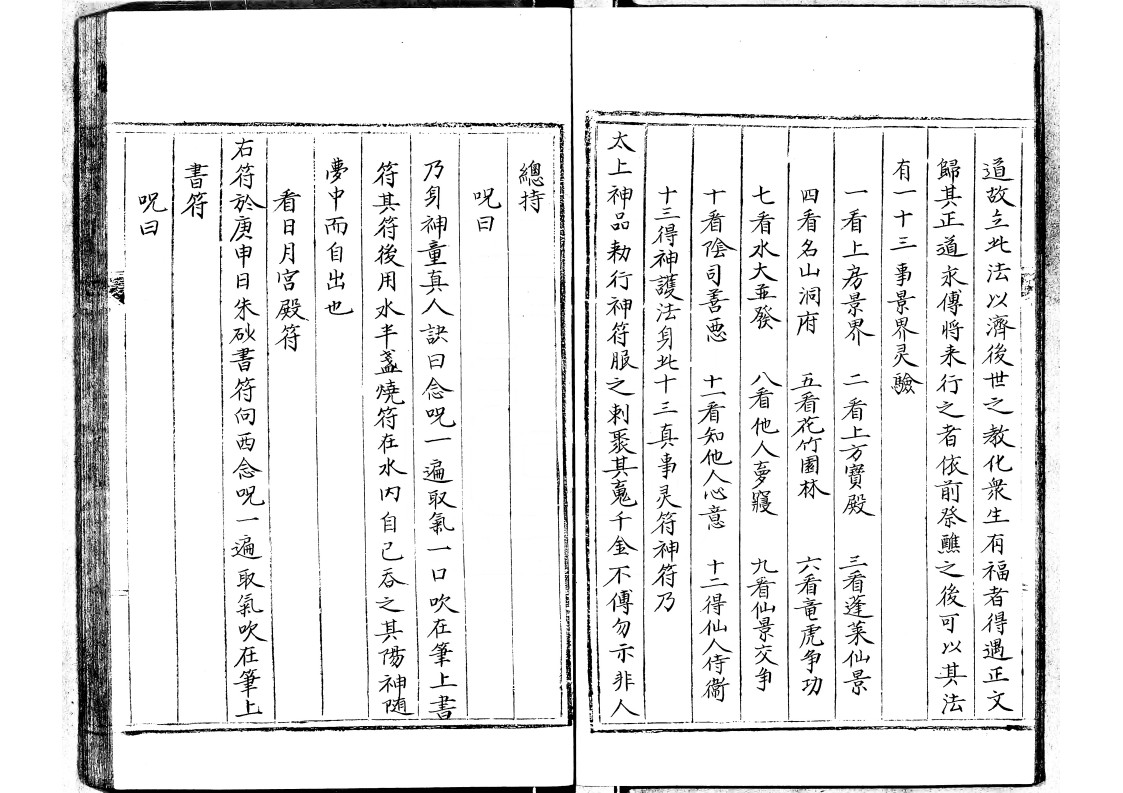 道故立此法以濟後世之教化衆生有福者得遇正文
歸其正道求傳將来行之者依前祭醮之後可以其法
有一十三事景界灵驗
一看上房景界 二看上方寶殿 三看蓬莱仙景
四看名山洞府 五看花竹園林 六看竜虎争功
七看水火並發 八看他人夢寢 九看仙景交争
十看陰司善悪 十一看知他人心意 十二得仙人侍衛
十三得神護法身此十三真事灵符神符乃
太上神品勑行神符服之刺聚其䰟千金不傳勿示非人
總持
呪曰
乃身神童真人訣曰念呪一遍取氣一口吹在筆上書
符其符後用水半盞燒符在水内自己吞之其陽神随
夢中而自出也
看日月宮殿符
右符於庚申日朱砂書符向西念呪一遍取氣吹在筆上
書符
呪曰